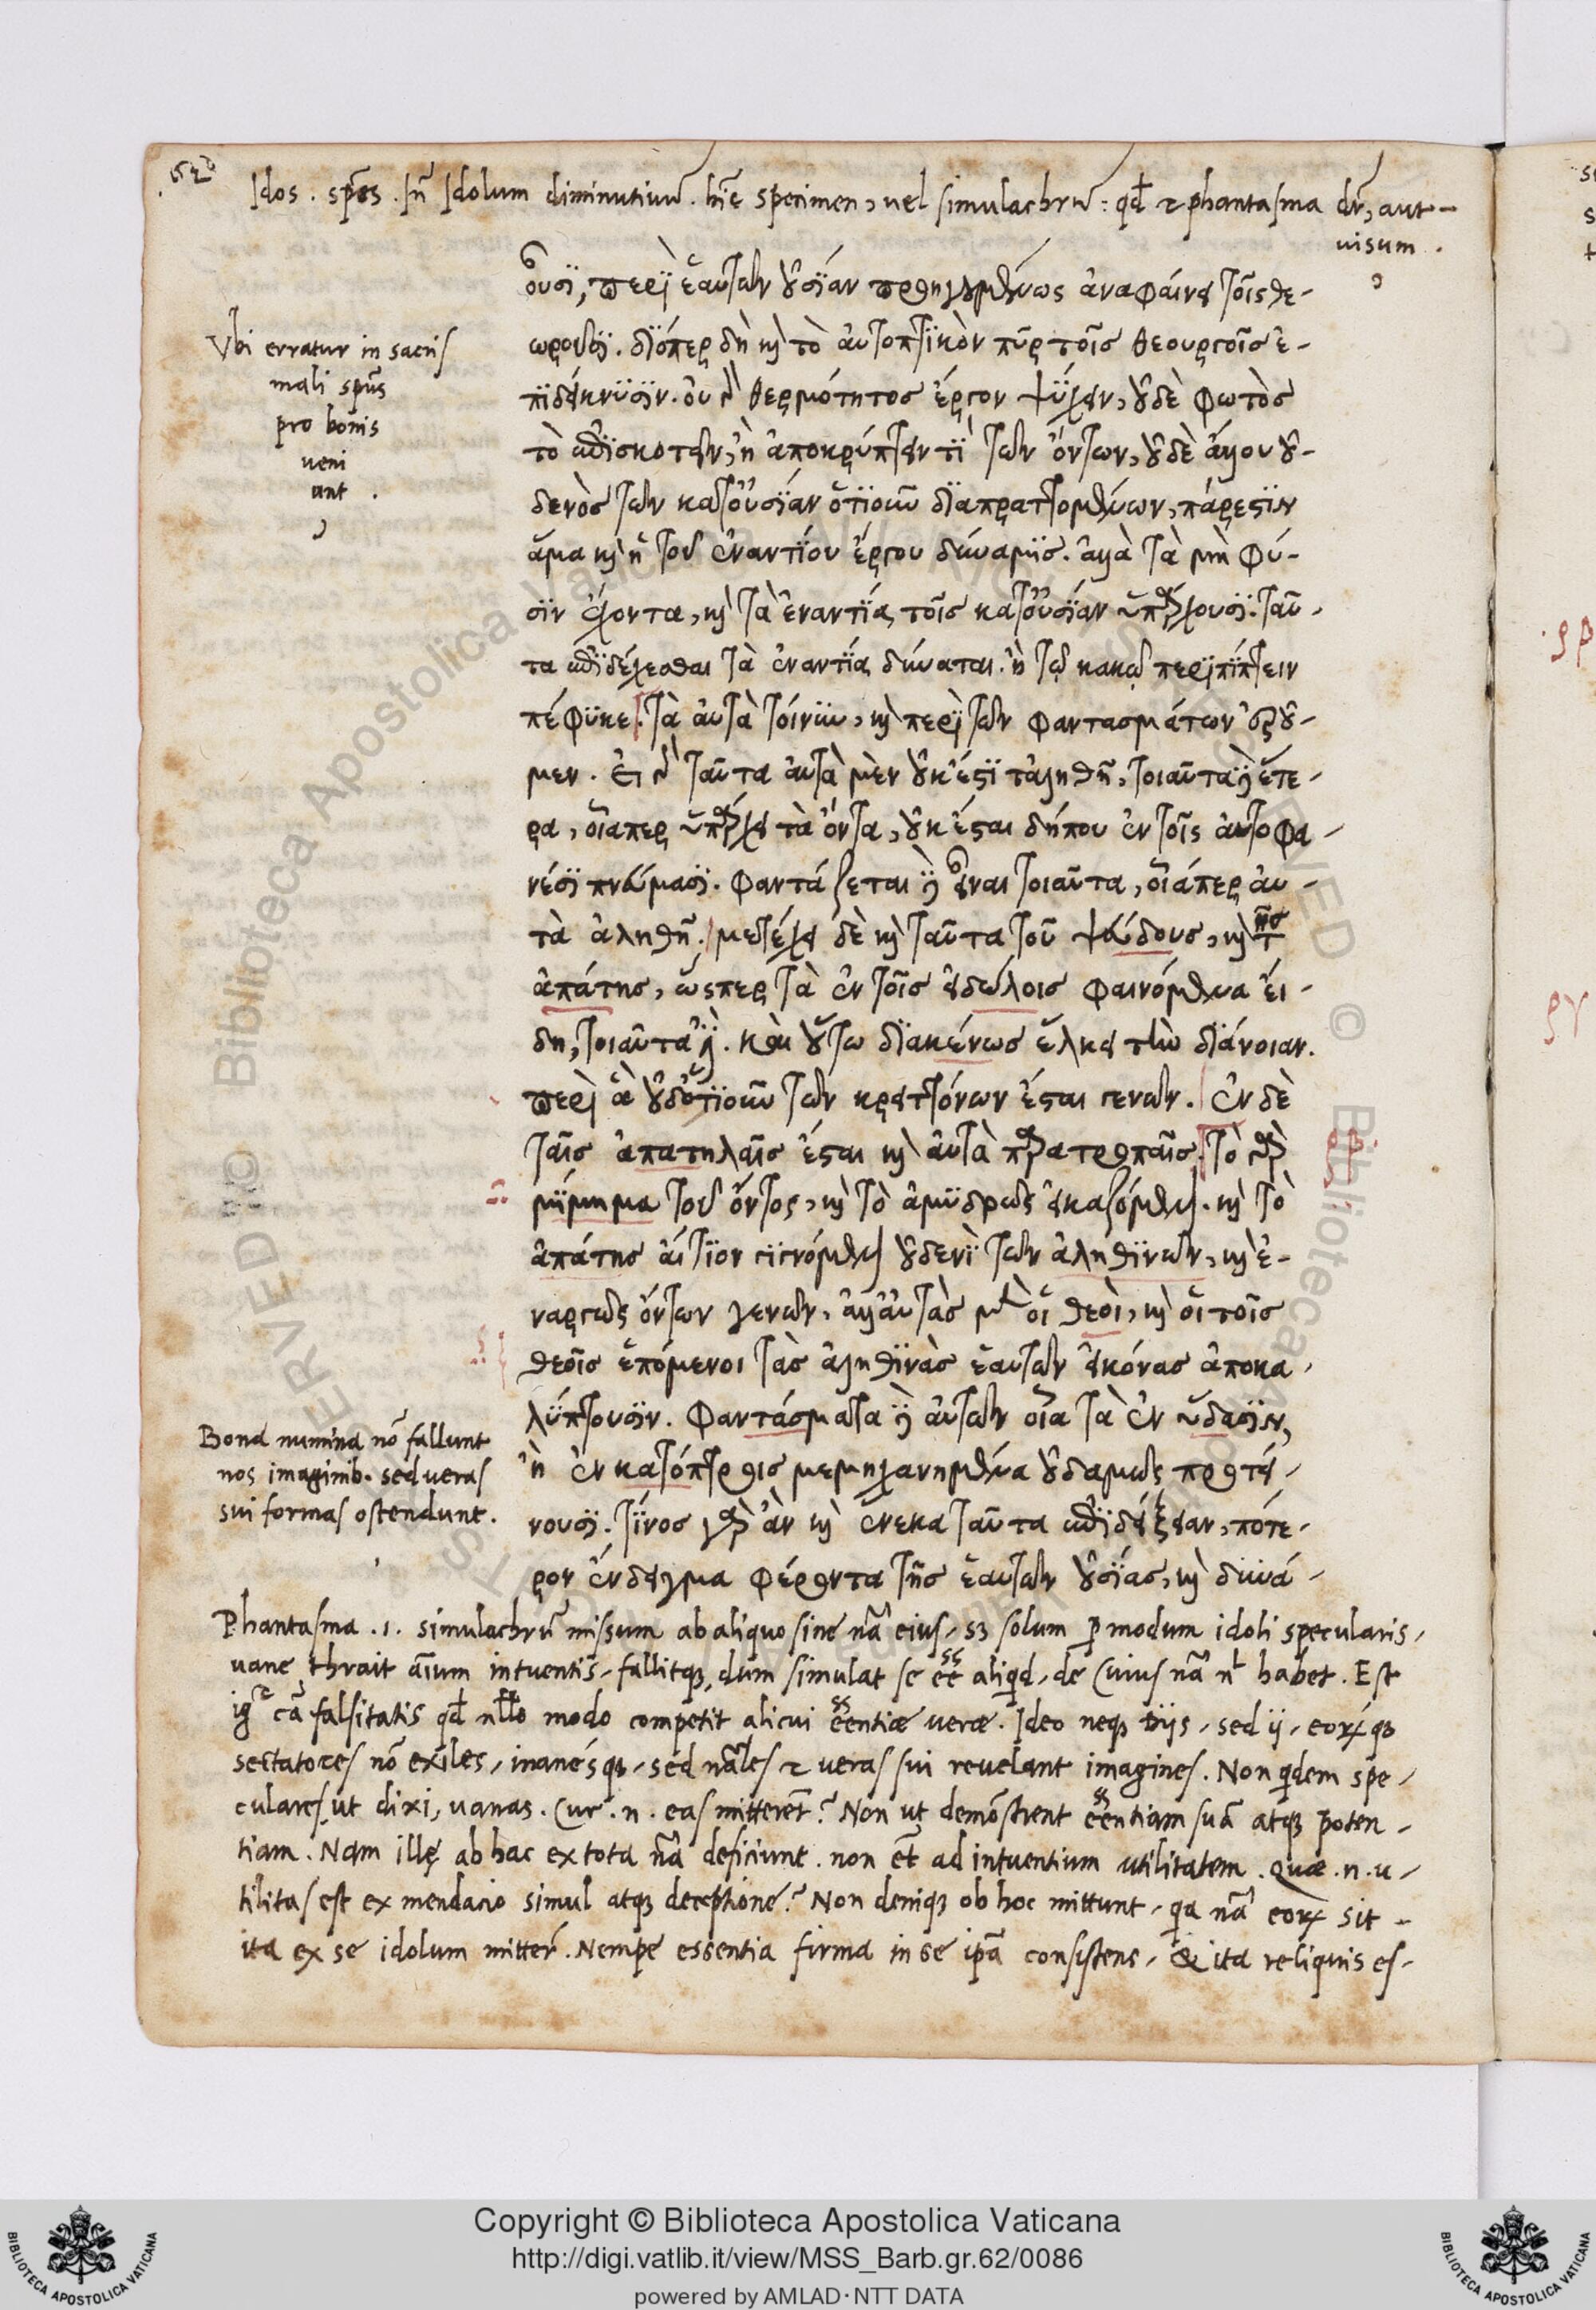 Idos . spẽs . Iñ Idolum diminutiuũ . hinc specimen, uel simulachrũ : qđ & phantasma dr̃, aut-
uisum .
ουσι, περὶ ἑαυτῶν οὐσίαν προηγουμένως ἀναφαίνει τοῖς θε-
ωροῦσι. διόπερ δὴ καὶ τὸ αὐτοπτικὸν πῦρ τοῖς θεουργοῖς ἐ-
πιδείκνυσιν. οὐ γὰρ θερμότητος ἔργον ψύχειν, οὐδὲ φωτὸς
τὸ ἐπισκοτεῖν, ἢ ἀποκρύπτειν τὶ τῶν ὄντων, οὐδὲ ἄλλου οὐ-
δενὸς τῶν κατ' οὐσίαν ὁτιοῦν διαπραττομένων, πάρεστιν
ἅμα καὶ ἡ τοῦ ἐναντίου ἔργου δύναμις. ἀλλὰ τὰ μὴ φύ-
σιν ἔχοντα, καὶ τὰ ἐναντία τοῖς κατ' οὐσίαν ὑπάρχουσι. ταῦ-
τα ἐπιδέχεσθαι τὰ ἐναντία δύναται. ἢ τῷ κακῷ περιπίπτειν
πέφυκε. τὰ αὐτὰ τοίνυν, καὶ περὶ τῶν φαντασμάτων ἐροῦ-
μεν. εἰ γὰρ ταῦτα αὐτὰ μὲν οὐκ ἔστι τἀληθῆ, τοιαῦτα δὲ ἕτε-
ρα, οἷάπερ ὑπάρχει τὰ ὄντα, οὐκ ἔσται δήπου ἐν τοῖς αὐτοφα-
νέσι πνεύμασι. φαντάζεται δὲ εἶναι τοιαῦτα, οἱάπερ αὐ-
τὰ ἀληθῆ. μετέχει δὲ καὶ ταῦτα τοῦ ψεύδους, καὶ τῆς
ἀπάτης, ὥσπερ τὰ ἐν τοῖς εἰδώλοις φαινόμενα εἴ-
δη, τοιαῦτα δὲ. καὶ οὕτω διακένως ἕλκει τὴν διάνοιαν.
περὶ ἃ οὐδ' ὁτιοῦν τῶν κρειττόνων ἔσται γενῶν. ἐν δὲ
ταῖς ἀπατηλαῖς ἔσται καὶ αὐτὰ παρατροπαῖς. τὸ γὰρ
μίμημα τοῦ ὄντος, καὶ τὸ ἀμυδρῶς εἰκαζόμενον. καὶ τὸ
ἀπάτης αἴτιον γιγνόμενον οὐδενὶ τῶν ἀληθινῶν, καὶ ἐ-
ναργῶς ὄντων γενῶν. ἀλλ' αὐτὰς μὲν οἱ θεοὶ, καὶ οἱ τοῖς
θεοῖς ἑπόμενοι τὰς ἀληθινὰς ἑαυτῶν εἰκόνας ἀποκα-
λύπτουσιν. φαντάσματα δὲ αὐτῶν οἷα τὰ ἐν ὕδασιν,
ἢ ἐν κατόπτροις μεμηχανημένα οὐδαμῶς προτεί-
νουσι. τίνος γὰρ ἂν καὶ ἕνεκα ταῦτα ἐπιδείξειαν, πότε-
ρον ἔνδειγμα φέροντα τῆς ἑαυτῶν οὐσίας, καὶ δυνά-
Vbi erratur in sacris
mali spũs
pro bonis
ueni
unt .
Bona numina nõ fallunt
nos imaginib. sed ueras
sui formas ostendunt.
Phantasma .i. simulachrũ missum ab aliquo sine nã eius, sȝ solum p modum idoli specularis,
uane thrait aĩum intuentis, fallitqȝ, dum simulat se eẽ aliqd, de cuius nã nł habet. Est
igr̃ cã falsitatis qđ nłło modo competit alicui eẽntiæ veræ. Ideo neqȝ diis, sed ii, eorqȝ
sectatores nõ exiles, inanésqȝ, sed nãles & ueras sui reuelant imagines. Non qdem spe,
culares, ut dixi, uanas. Cur .n. eas mitterẽt? Non ut demõstrent eẽntiam suã atqȝ poten,
tiam. Nam illę ab hac ex tota nã deficiunt. non eť ad intuentium utilitatem. Quæ .n. u,
tilitas est ex mendacio simul atqȝ deceptione? Non deniqȝ ob hoc mittunt, qa nã eor sit-
ita ex se idolum mitter̃. Nempe essentia firma in se ipã consistens, & ita reliquis es,
ρβ.
Copyright © Biblioteca Apostolica Vaticana
http://digi.vatlib.it/view/MSS_Barb.gr.62/0086
powered by AMLAD · NTT DATA
BIBLIOTECA APOSTOLICA VATICANA
BIBLIOTECA APOSTOLICA VATICANA